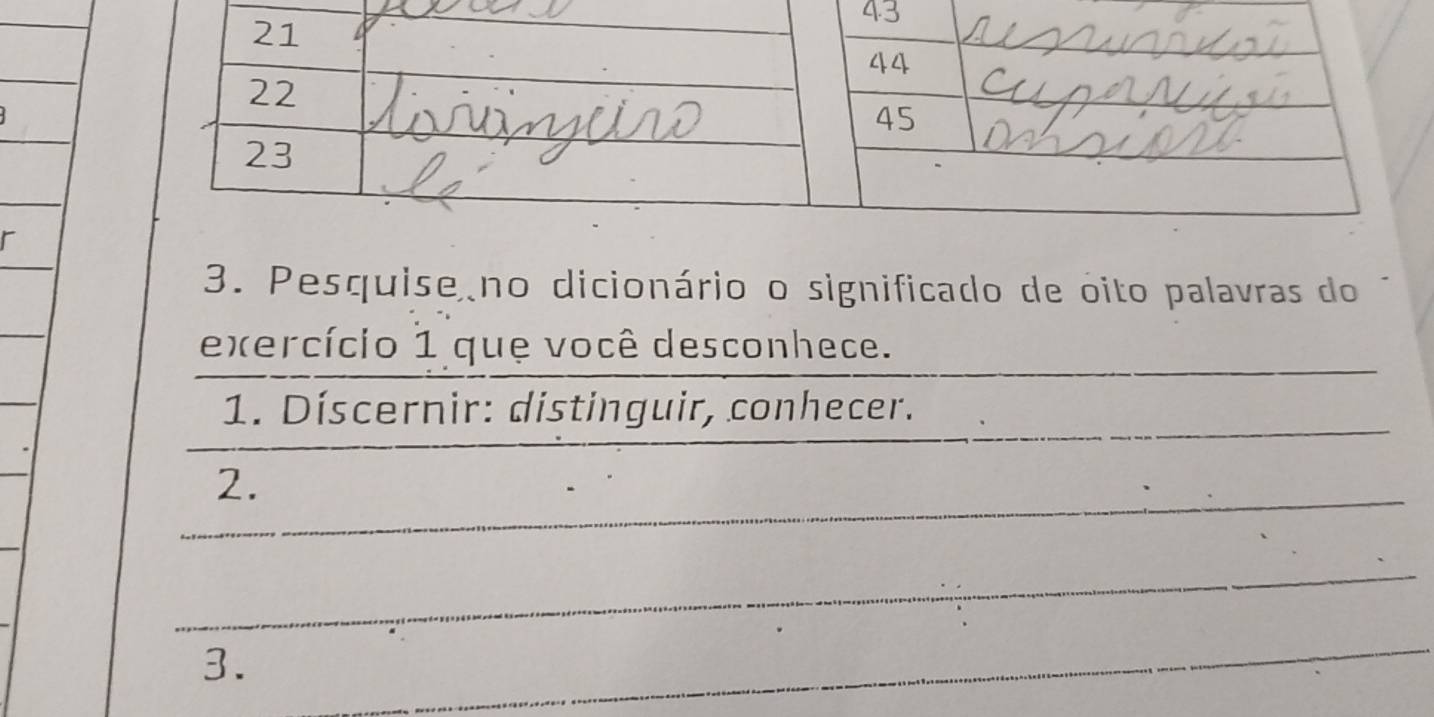 21
22 laranjeira
23 lé
43
44
45 ansiosa
r
3. Pesquise no dicionário o significado de oito palavras do
exercício 1 que você desconhece.
1. Discernir: distinguir, conhecer.
2.
3.